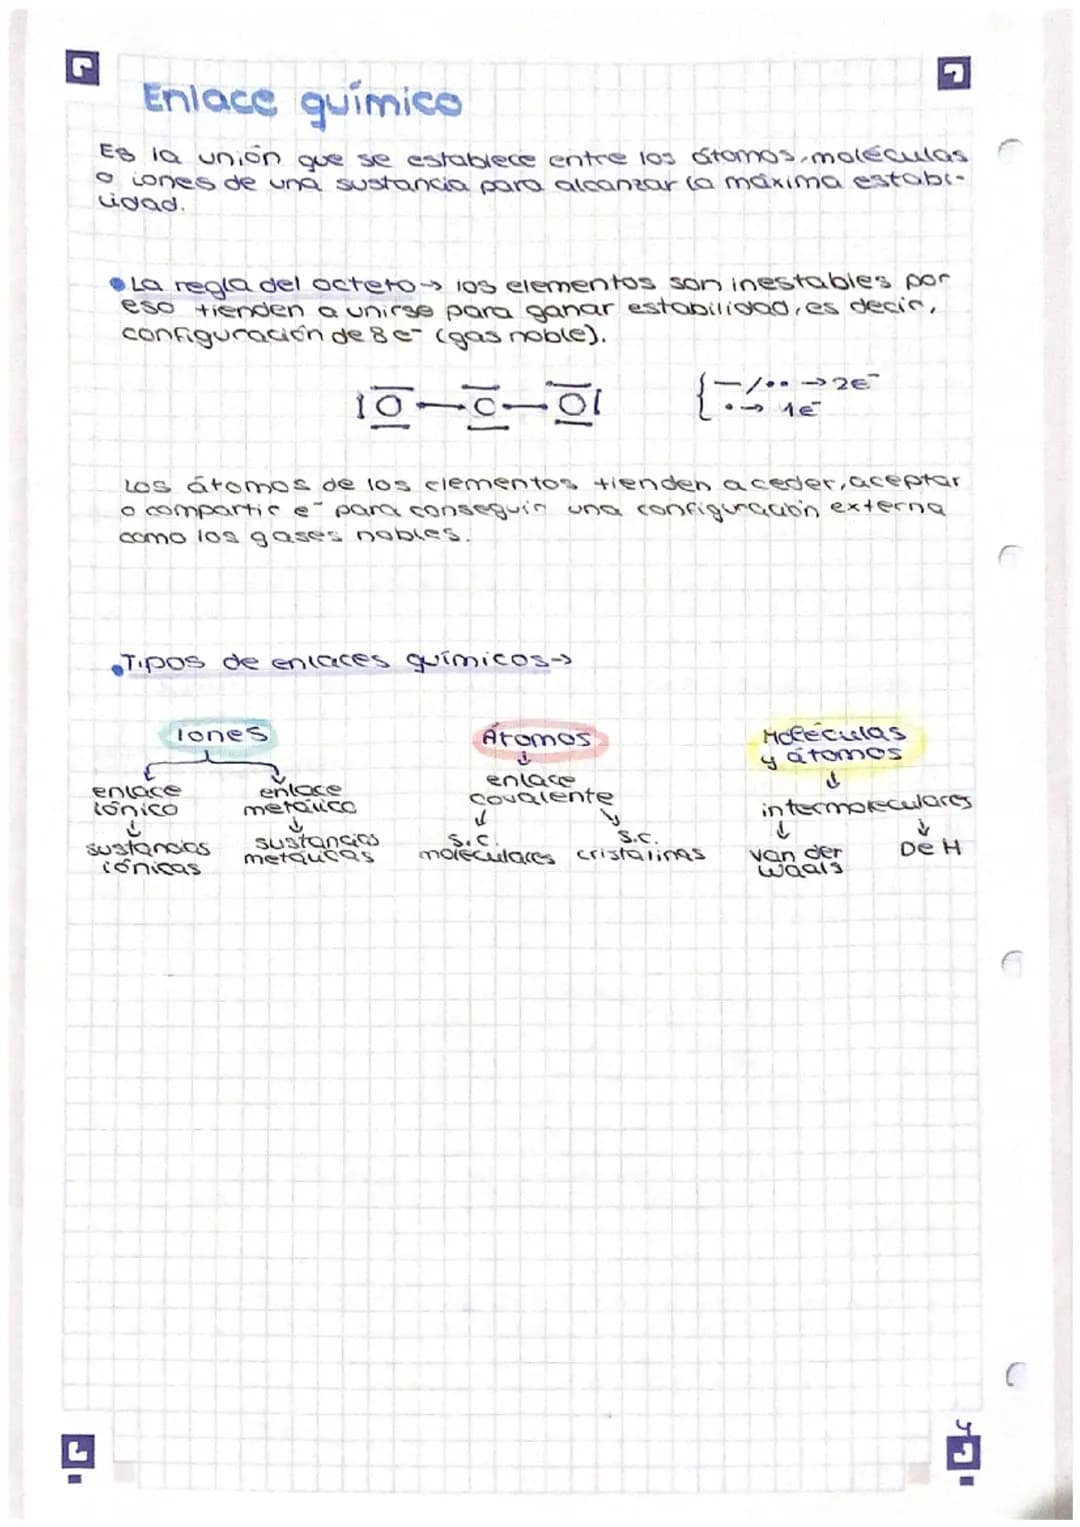 Enlace químico
Es la unión que se establece entre los átomos, moléculas
o iones de una sustancia para alcanzar la máxima estabi-
lidad.
• La regla del octeto → los elementos son inestables por
eso tienden a unirse para ganar estabilidad, es decir,
configuración de 8 e⁻ (gas noble).
|O — C — O|
{ —/•• → 2e⁻
• → 1e⁻
Los átomos de los elementos tienden a ceder, aceptar
o compartir e⁻ para conseguir una configuración externa
como los gases nobles.
• Tipos de enlaces químicos →
iones Átomos Moléculas
y átomos
enlace enlace enlace intermoleculares
iónico metálico covalente
sustancias sustancias s.c. s.c. van der De H
iónicas metálicas moleculares cristalinas waals
4